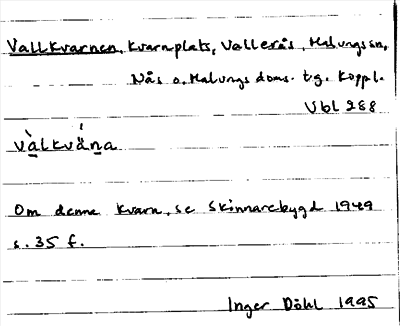 Vallkvarnen, kvarnplats, Vallerås, Malungs sn,
Nås o. Malungs doms. tg. Koppl.
Vbl 288
vå̱̀lkvä́ṉa
Om denna kvarn, se Skinnarebygd 1949
s. 35 f.
Inger Döhl 1995